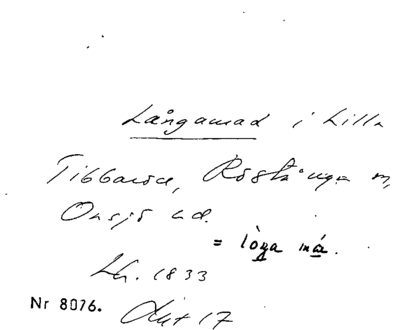 Långamad i Lilla
Tibbaröd, Röstånga m,
Onsjö hd.
= lòŋa má.
Lh. 1833
Nr 8076. Akt 17